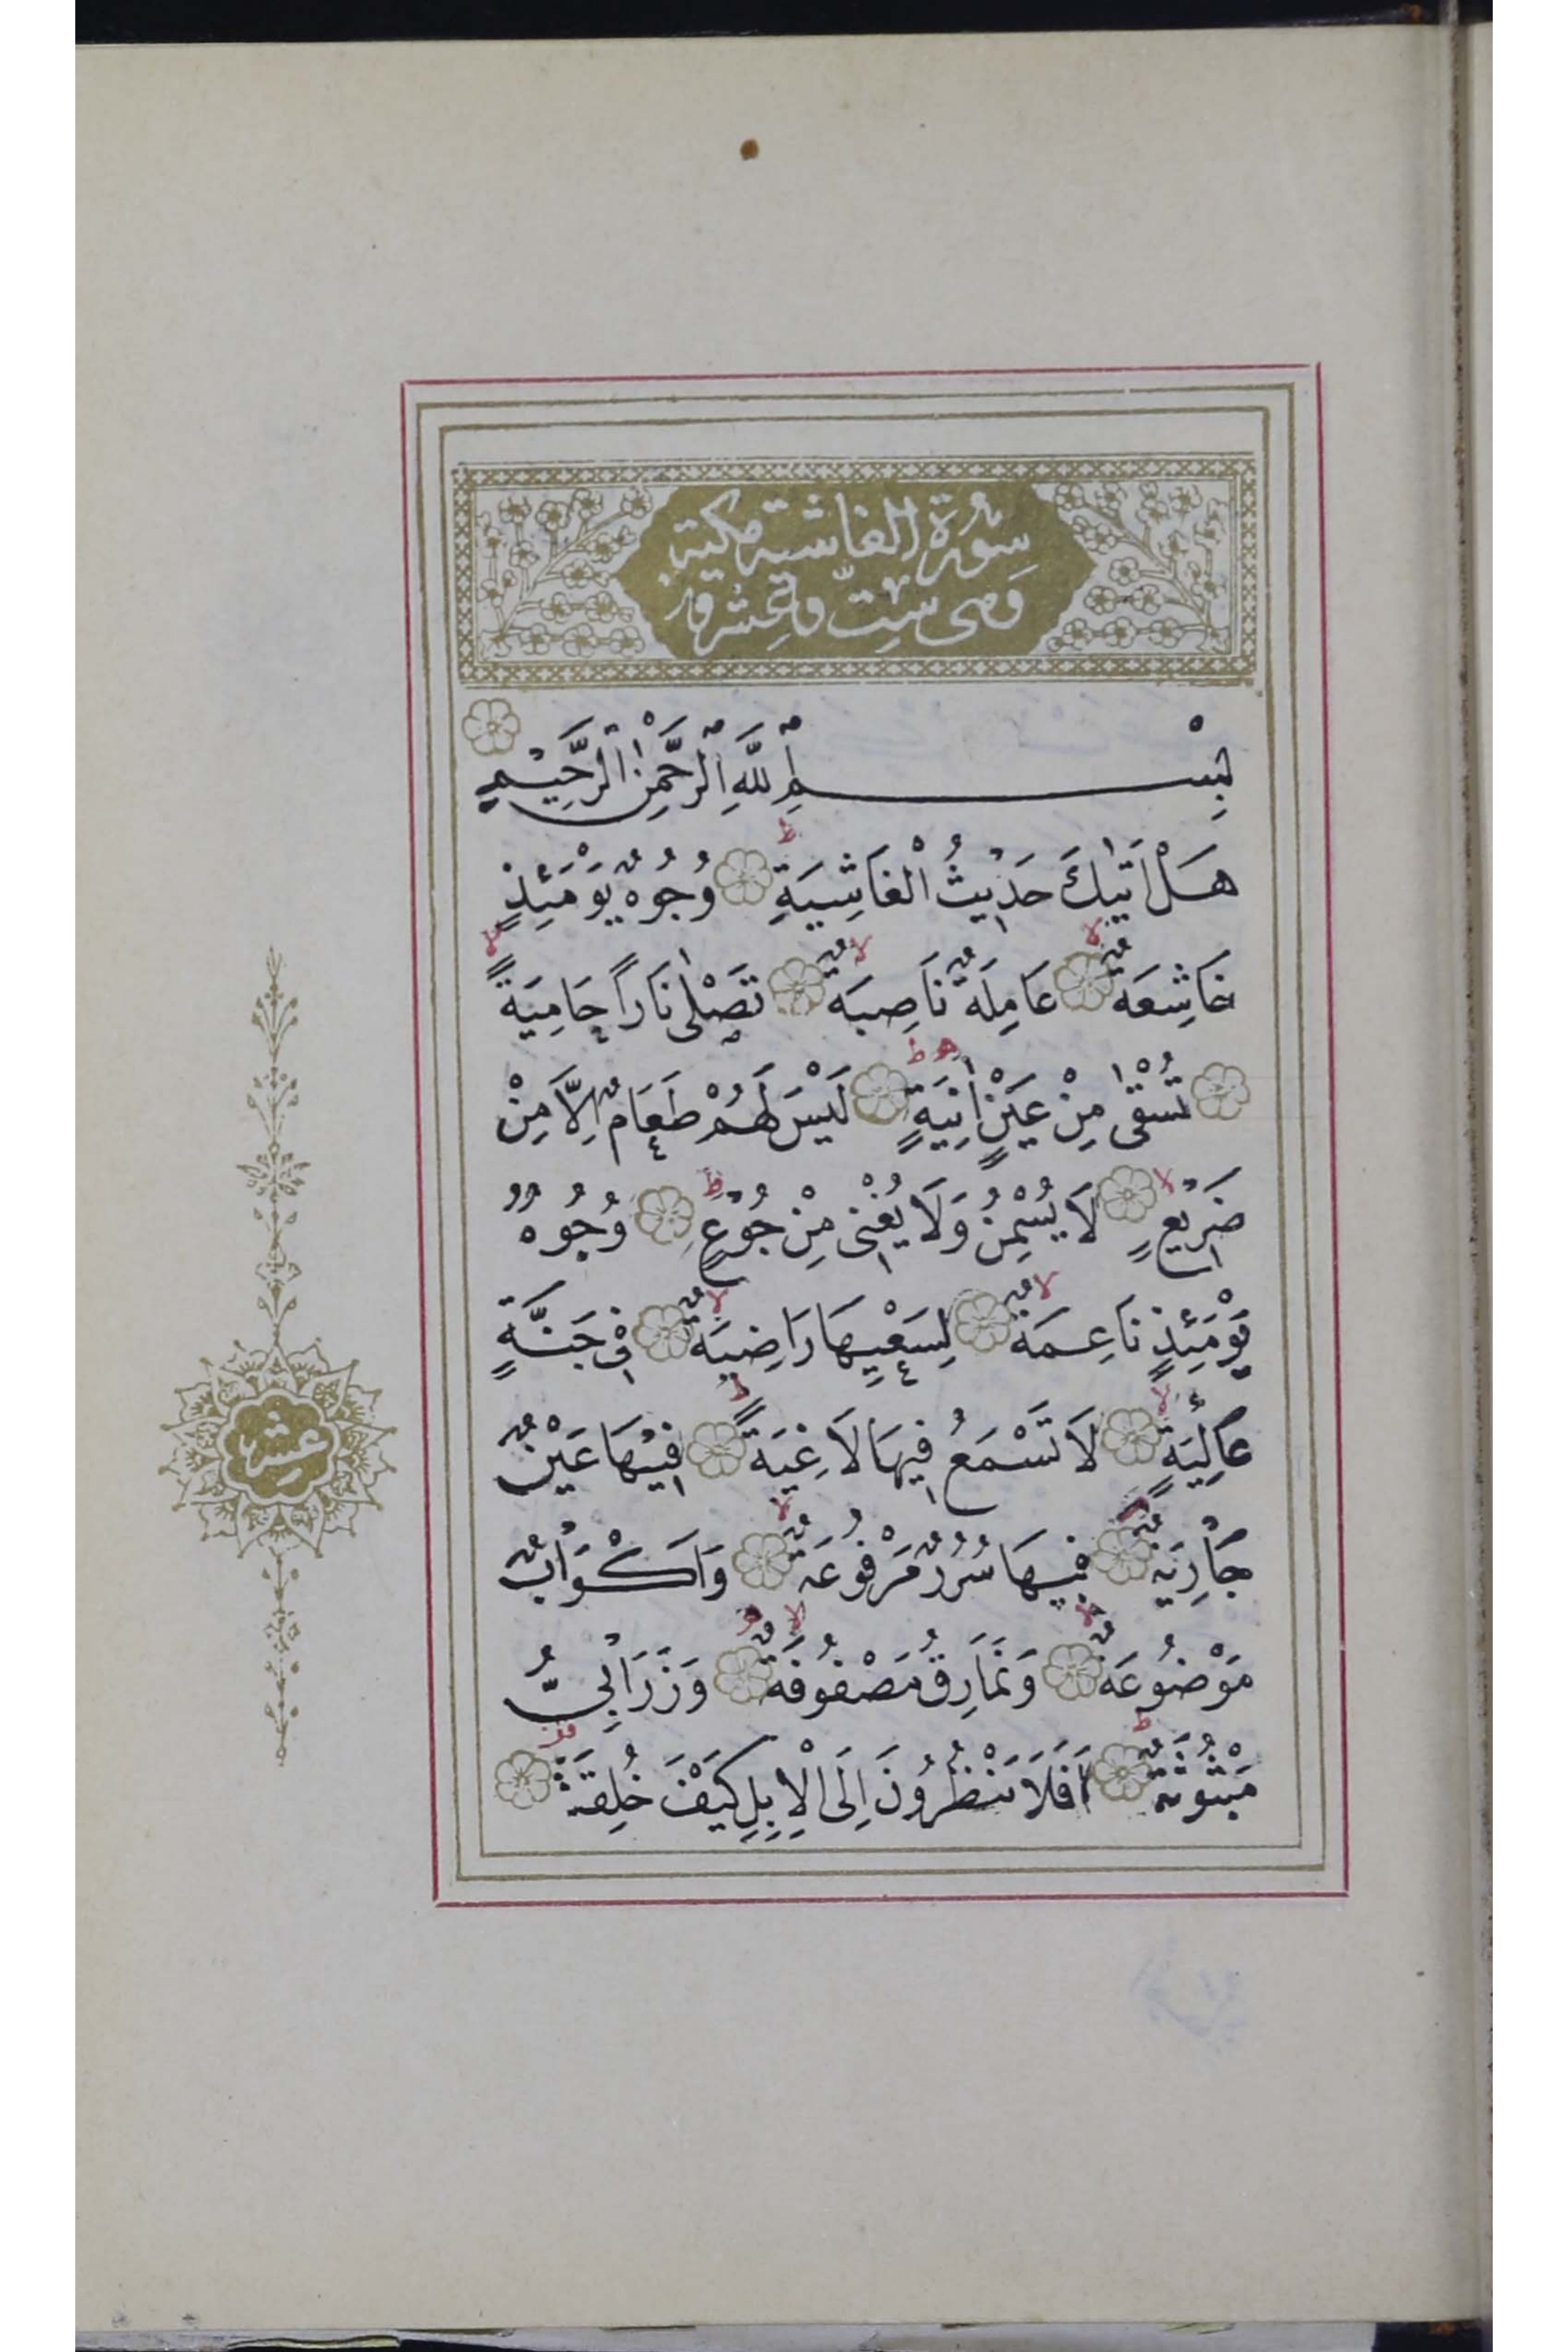 سُورَةُ الغاشية مكية
وهى ست وعشرون
بِسْمِ اللَّهِ الرَّحْمٰنِ الرَّحِيمِ
هَلْ اَتٰيكَ حَدِيثُ الْغَاشِيَةِ وُجُوهٌ يَوْمَئِذٍ
خَاشِعَةٌ عَامِلَةٌ نَاصِبَةٌ تَصْلٰى نَارًا حَامِيَةً
تُسْقٰى مِنْ عَيْنٍ اٰنِيَةٍ لَيْسَ لَهُمْ طَعَامٌ اِلَّا مِنْ
ضَرِيعٍ لَا يُسْمِنُ وَلَا يُغْنِى مِنْ جُوعٍ وُجُوهٌ
يَوْمَئِذٍ نَاعِمَةٌ لِسَعْيِهَا رَاضِيَةٌ فِى جَنَّةٍ
عَالِيَةٍ لَا تَسْمَعُ فِيهَا لَاغِيَةً فِيهَا عَيْنٌ
جَارِيَةٌ فِيهَا سُرُرٌ مَرْفُوعَةٌ وَاَكْوَابٌ
عشر
مَوْضُوعَةٌ وَنَمَارِقُ مَصْفُوفَةٌ وَزَرَابِىُّ
مَبْثُوثَةٌ اَفَلَا يَنْظُرُونَ اِلَى الْاِبِلِ كَيْفَ خُلِقَتْ